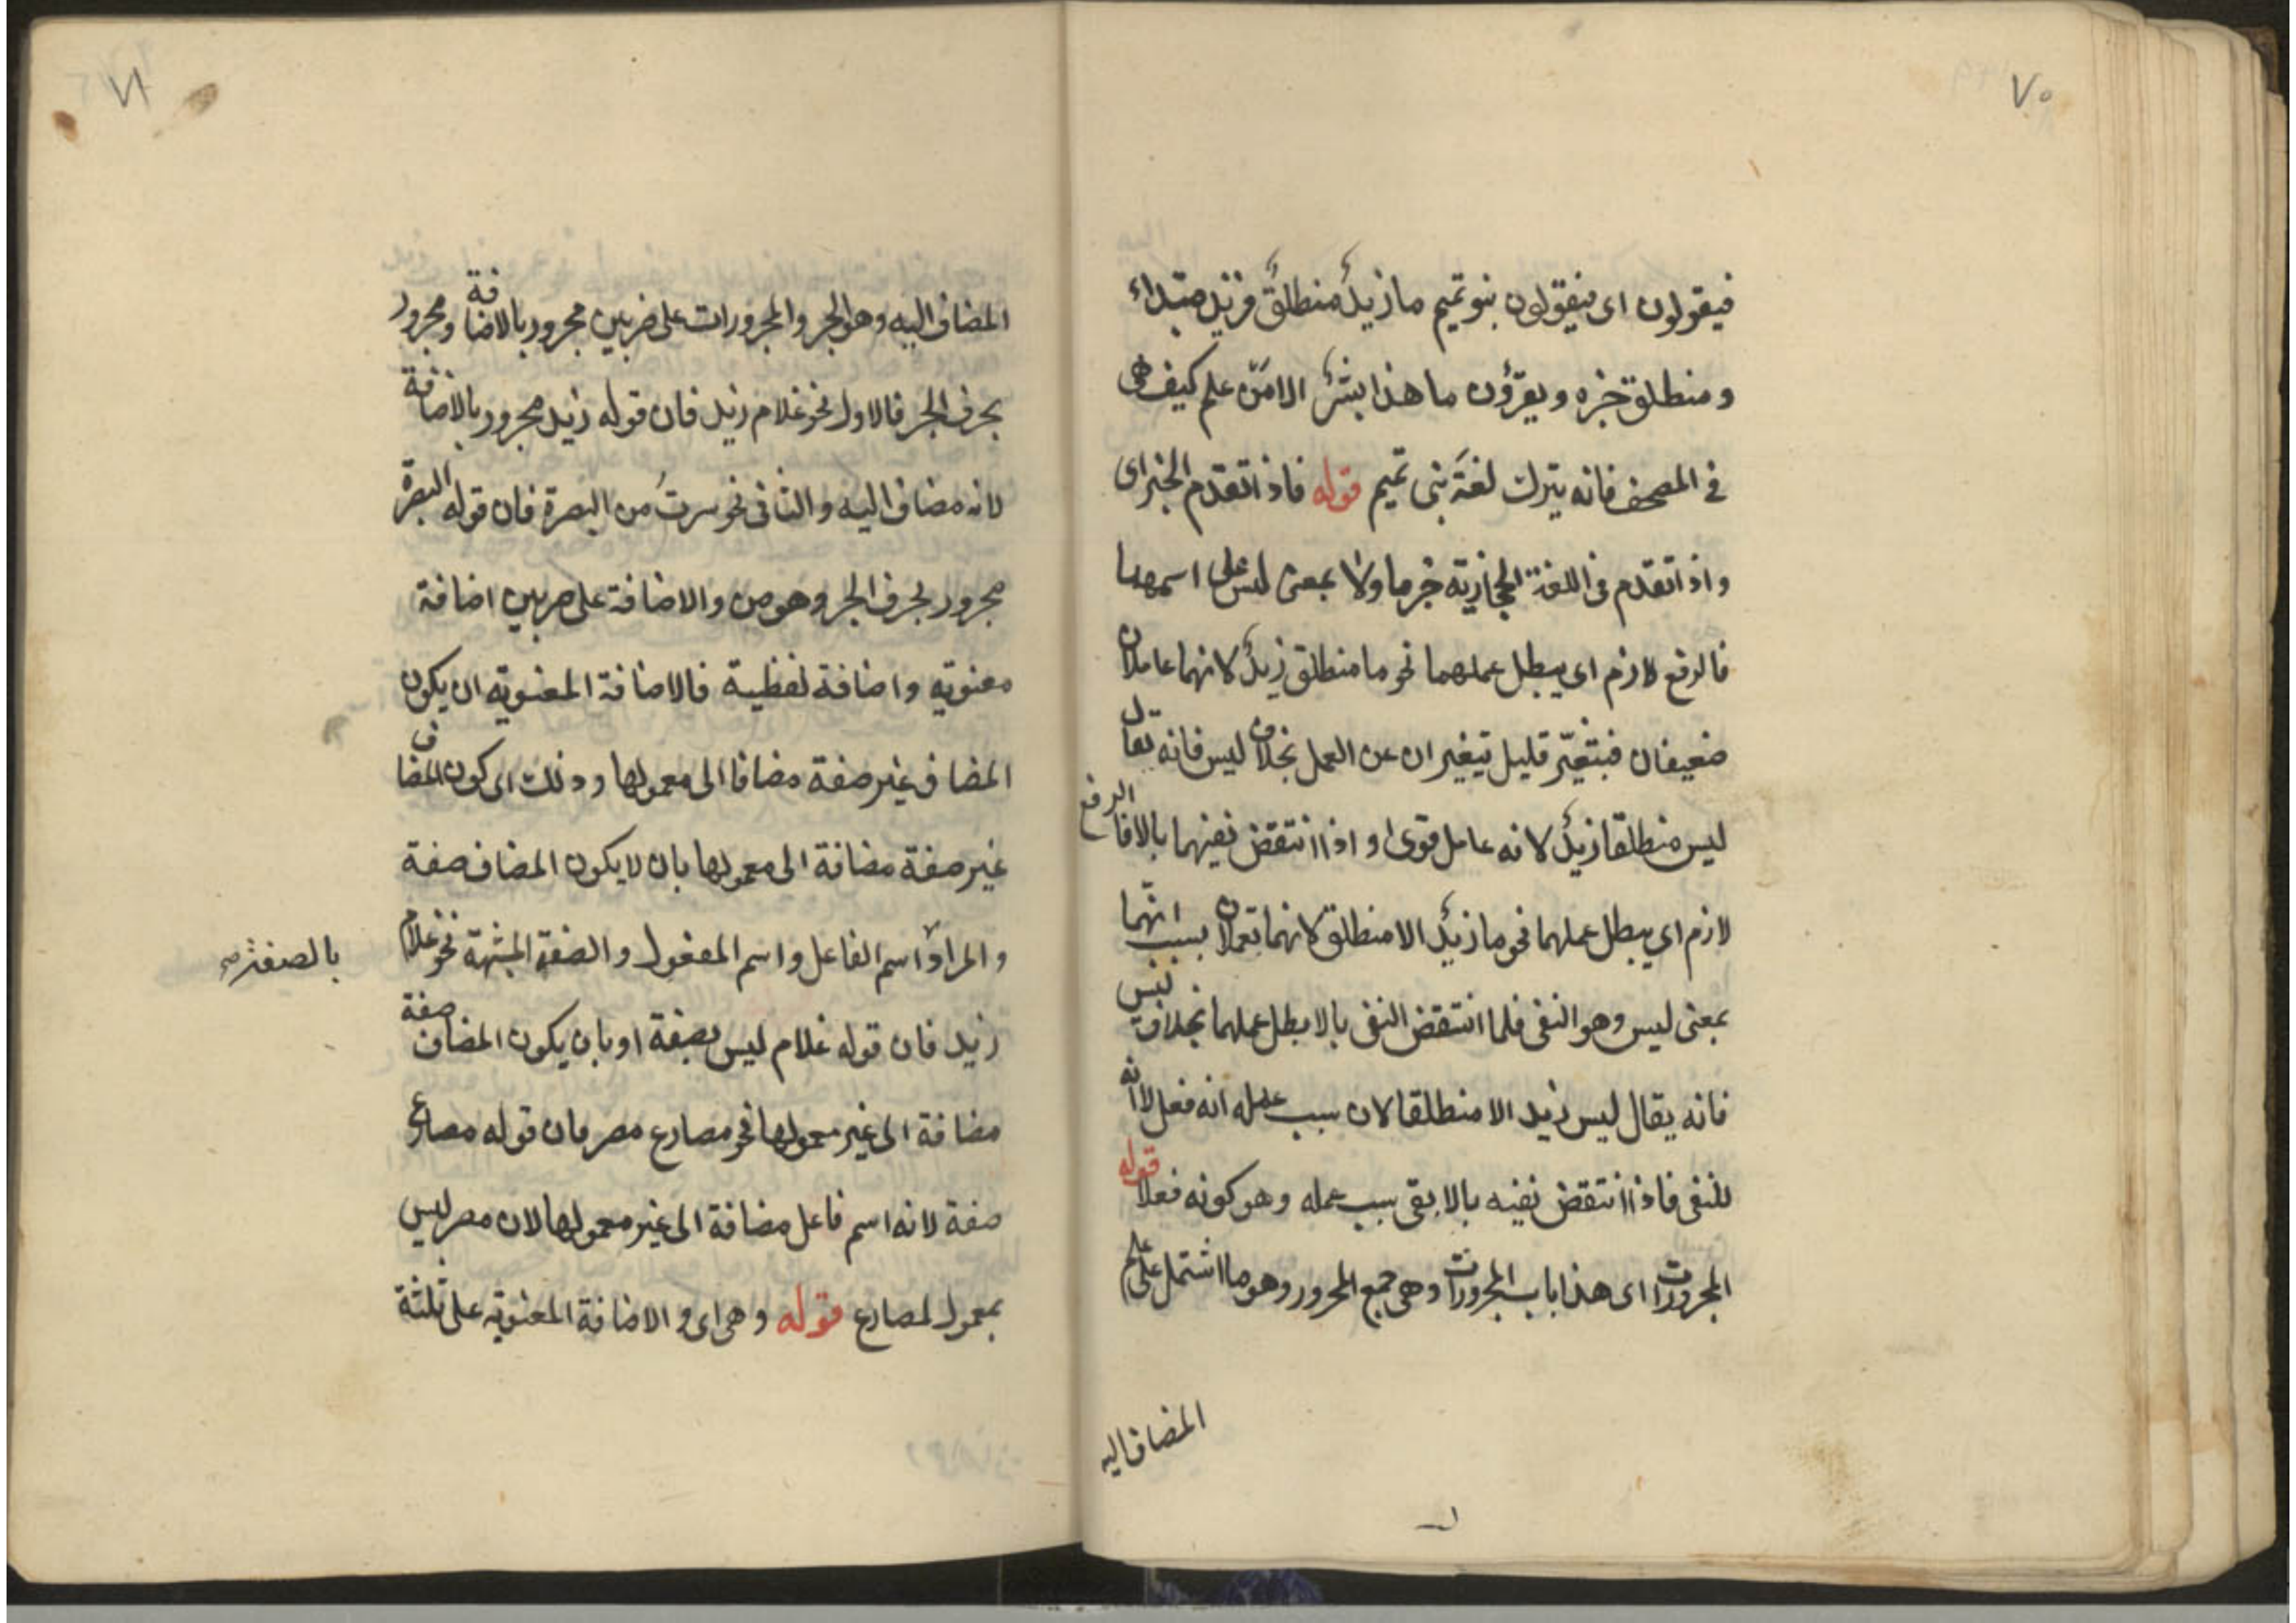 ٧٠
فيقولون اى فيقولون بنو تميم ما زيدٌ منطلقٌ فزيد مبتداء
ومنطلق خبره ويقرؤن ما هذا بشرٌ الا من علم كيف هى
فى المصحف فانه يترك لغة بنى تميم قوله فاذا تقدم الخبر اى
واذا تقدم فى اللغة الحجازية خبر ما ولا بمعنى ليس على اسمهما
فالرفع لازم اى يبطل عملهما نحو ما منطلق زيدٌ لانهما عاملان
ضعيفان فبتغيّر قليل تيغيران عن العمل بخلاف ليس فانه يقال
ليس منطلقا زيدٌ لانه عامل قوى او اذا انتقض نفيهما بالا فالرفع
لازم اى يبطل عملهما نحو ما زيدٌ الا منطلق لانهما تعملان بسبب انهما
بمعنى ليس وهو النفى فلما انتقض النفى بالا بطل عملهما بخلاف ليس
فانه يقال ليس زيد الا منطلقا لان سبب عمله انه فعل لا انه
للنفى فاذا انتقض نفيه بالا بقى سبب عمله وهو كونه فعلا قوله
المجرورات اى هذا باب المجرورات وهى جمع المجرور وهو ما اشتمل على علم
المضاف اليه
٧١
المضاف اليه وهو الجر والمجرورات على ضربين مجرور بالاضافة ومجرور
بحرف الجر فالاول نحو غلام زيد فان قوله زيد مجرور بالاضافة
لانه مضاف اليه والثانى نحو سرتُ من البصرة فان قوله البصرة
مجرور بحرف الجر وهو من والاضافة على ضربين اضافة
معنوية واضافة لفظية فالاضافة المعنوية ان يكون
المضاف غير صفة مضافا الى معمولها وذلك اى كون المضاف
غير صفة مضافة الى معمولها بان لا يكون المضاف صفة
والمراد اسم الفاعل واسم المفعول والصفة المشبهة نحو غلام
بالصفة صح
زيد فان قوله غلام ليس بصفة او بان يكون المضاف صفة
مضافة الى غير معمولها نحو مصارع مصر فان قوله مصارع
صفة لانه اسم فاعل مضافة الى غير معمولها لان مصر ليس
بمعمول لمصارع قوله وهى اى والاضافة المعنوية على ثلثة